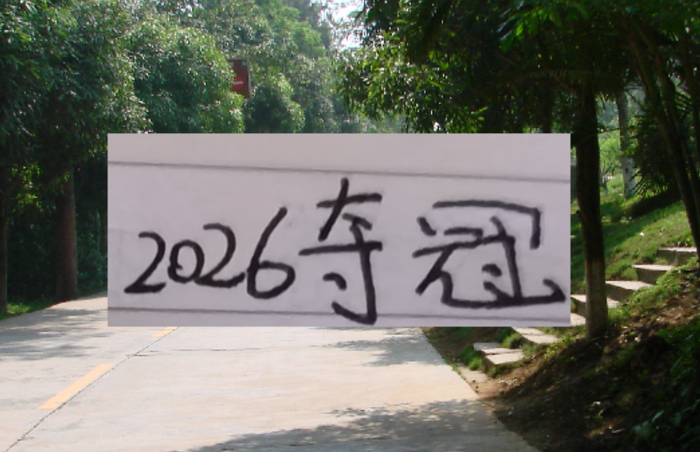 2026夺冠